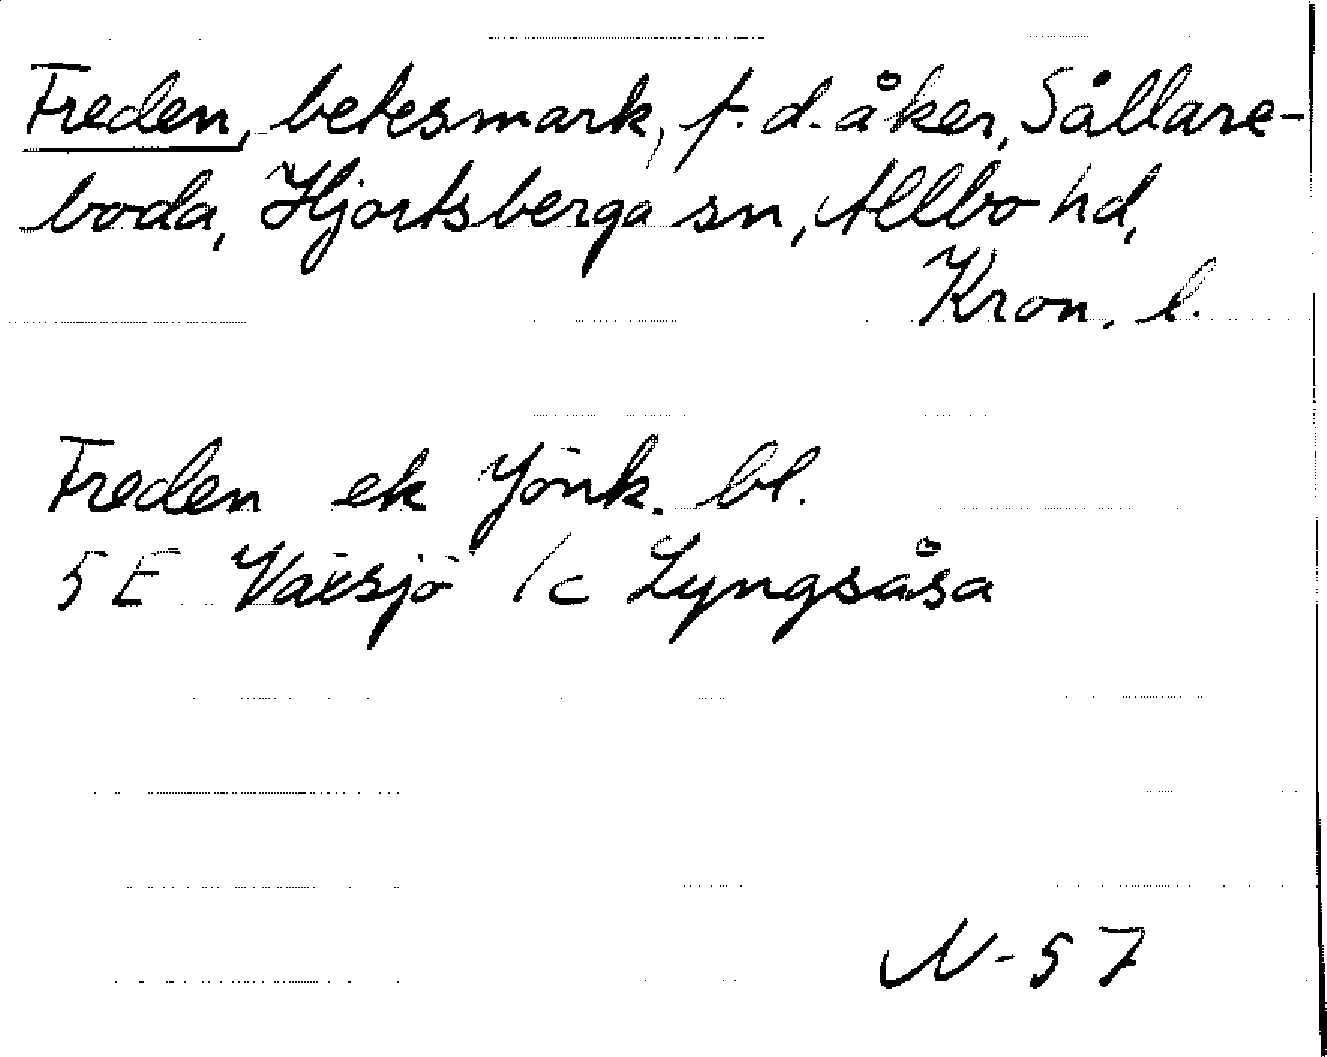 Freden, betesmark, f.d. åker, Sållare-
boda, Hjortsberga sn, Allbo hd,
Kron. l.
Freden ek Jönk. bl.
5 E Växsjö /c Lyngsåsa
N-57